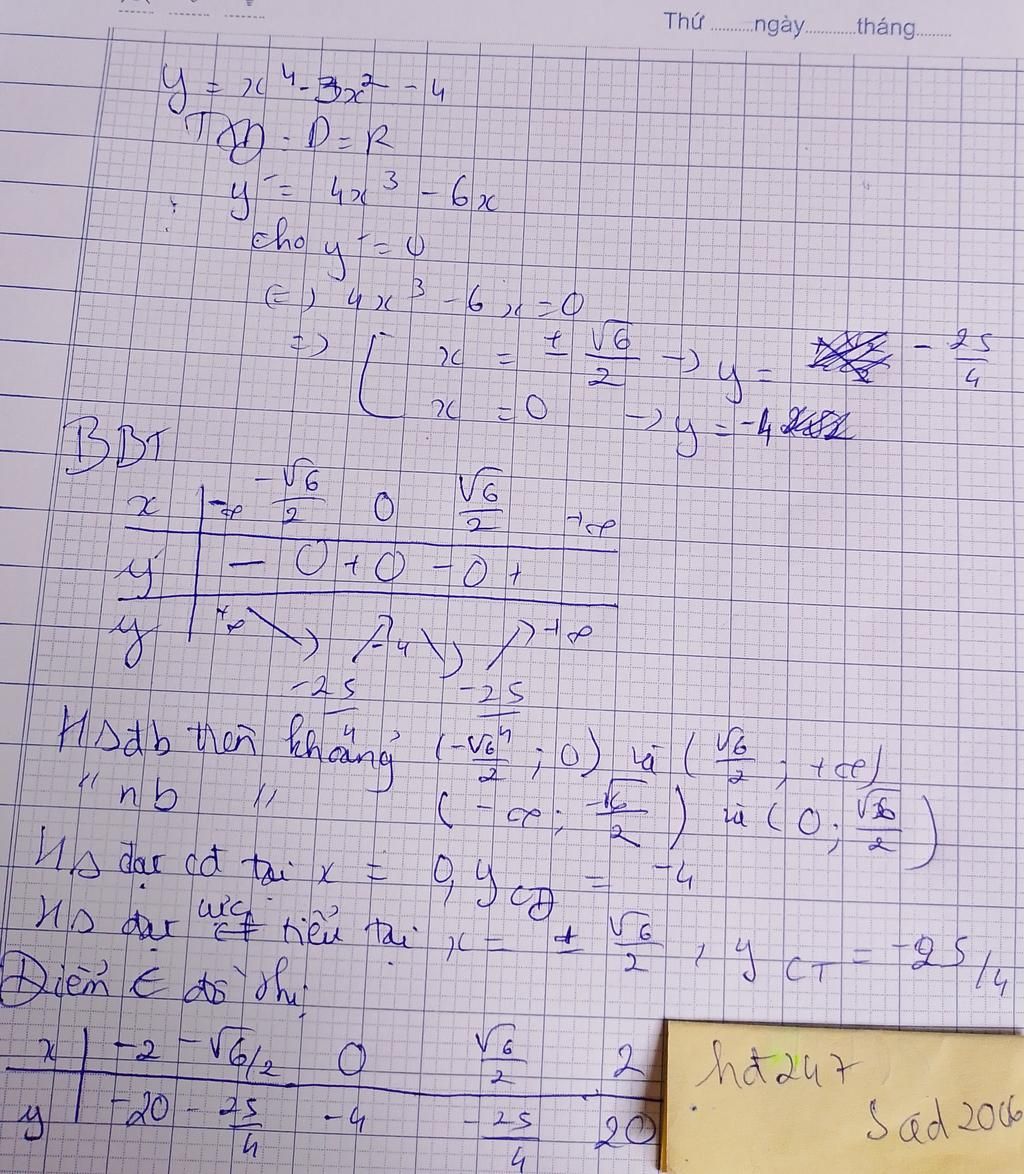 Thứ ..........ngày............tháng........
y = x⁴ - 3x² - 4
TXĐ : D = R
y' = 4x³ - 6x
cho y' = 0
(=) 4x³ - 6x = 0
=> [ x = ± √6/2 → y = - 25/4
x = 0 → y = -4
BBT
x | -∞ -√6/2 0 √6/2 +∞
y' | - 0 + 0 - 0 +
y | +∞ ↘ ↗ -4 ↘ ↗ +∞
-25/4 -25/4
HS đb trên khoảng (-√6/2 ; 0) và (√6/2 ; +∞)
" nb " (-∞ ; -√6/2) và (0 ; √6/2)
HS đạt cđ tại x = 0, y CĐ = -4
HS đạt cực tiểu tại x = ± √6/2 , y CT = -25/4
Điểm ∈ đồ thị
x | -2 -√6/2 0 √6/2 2
y | -20 -25/4 -4 -25/4 20
hđ247
Sad2006